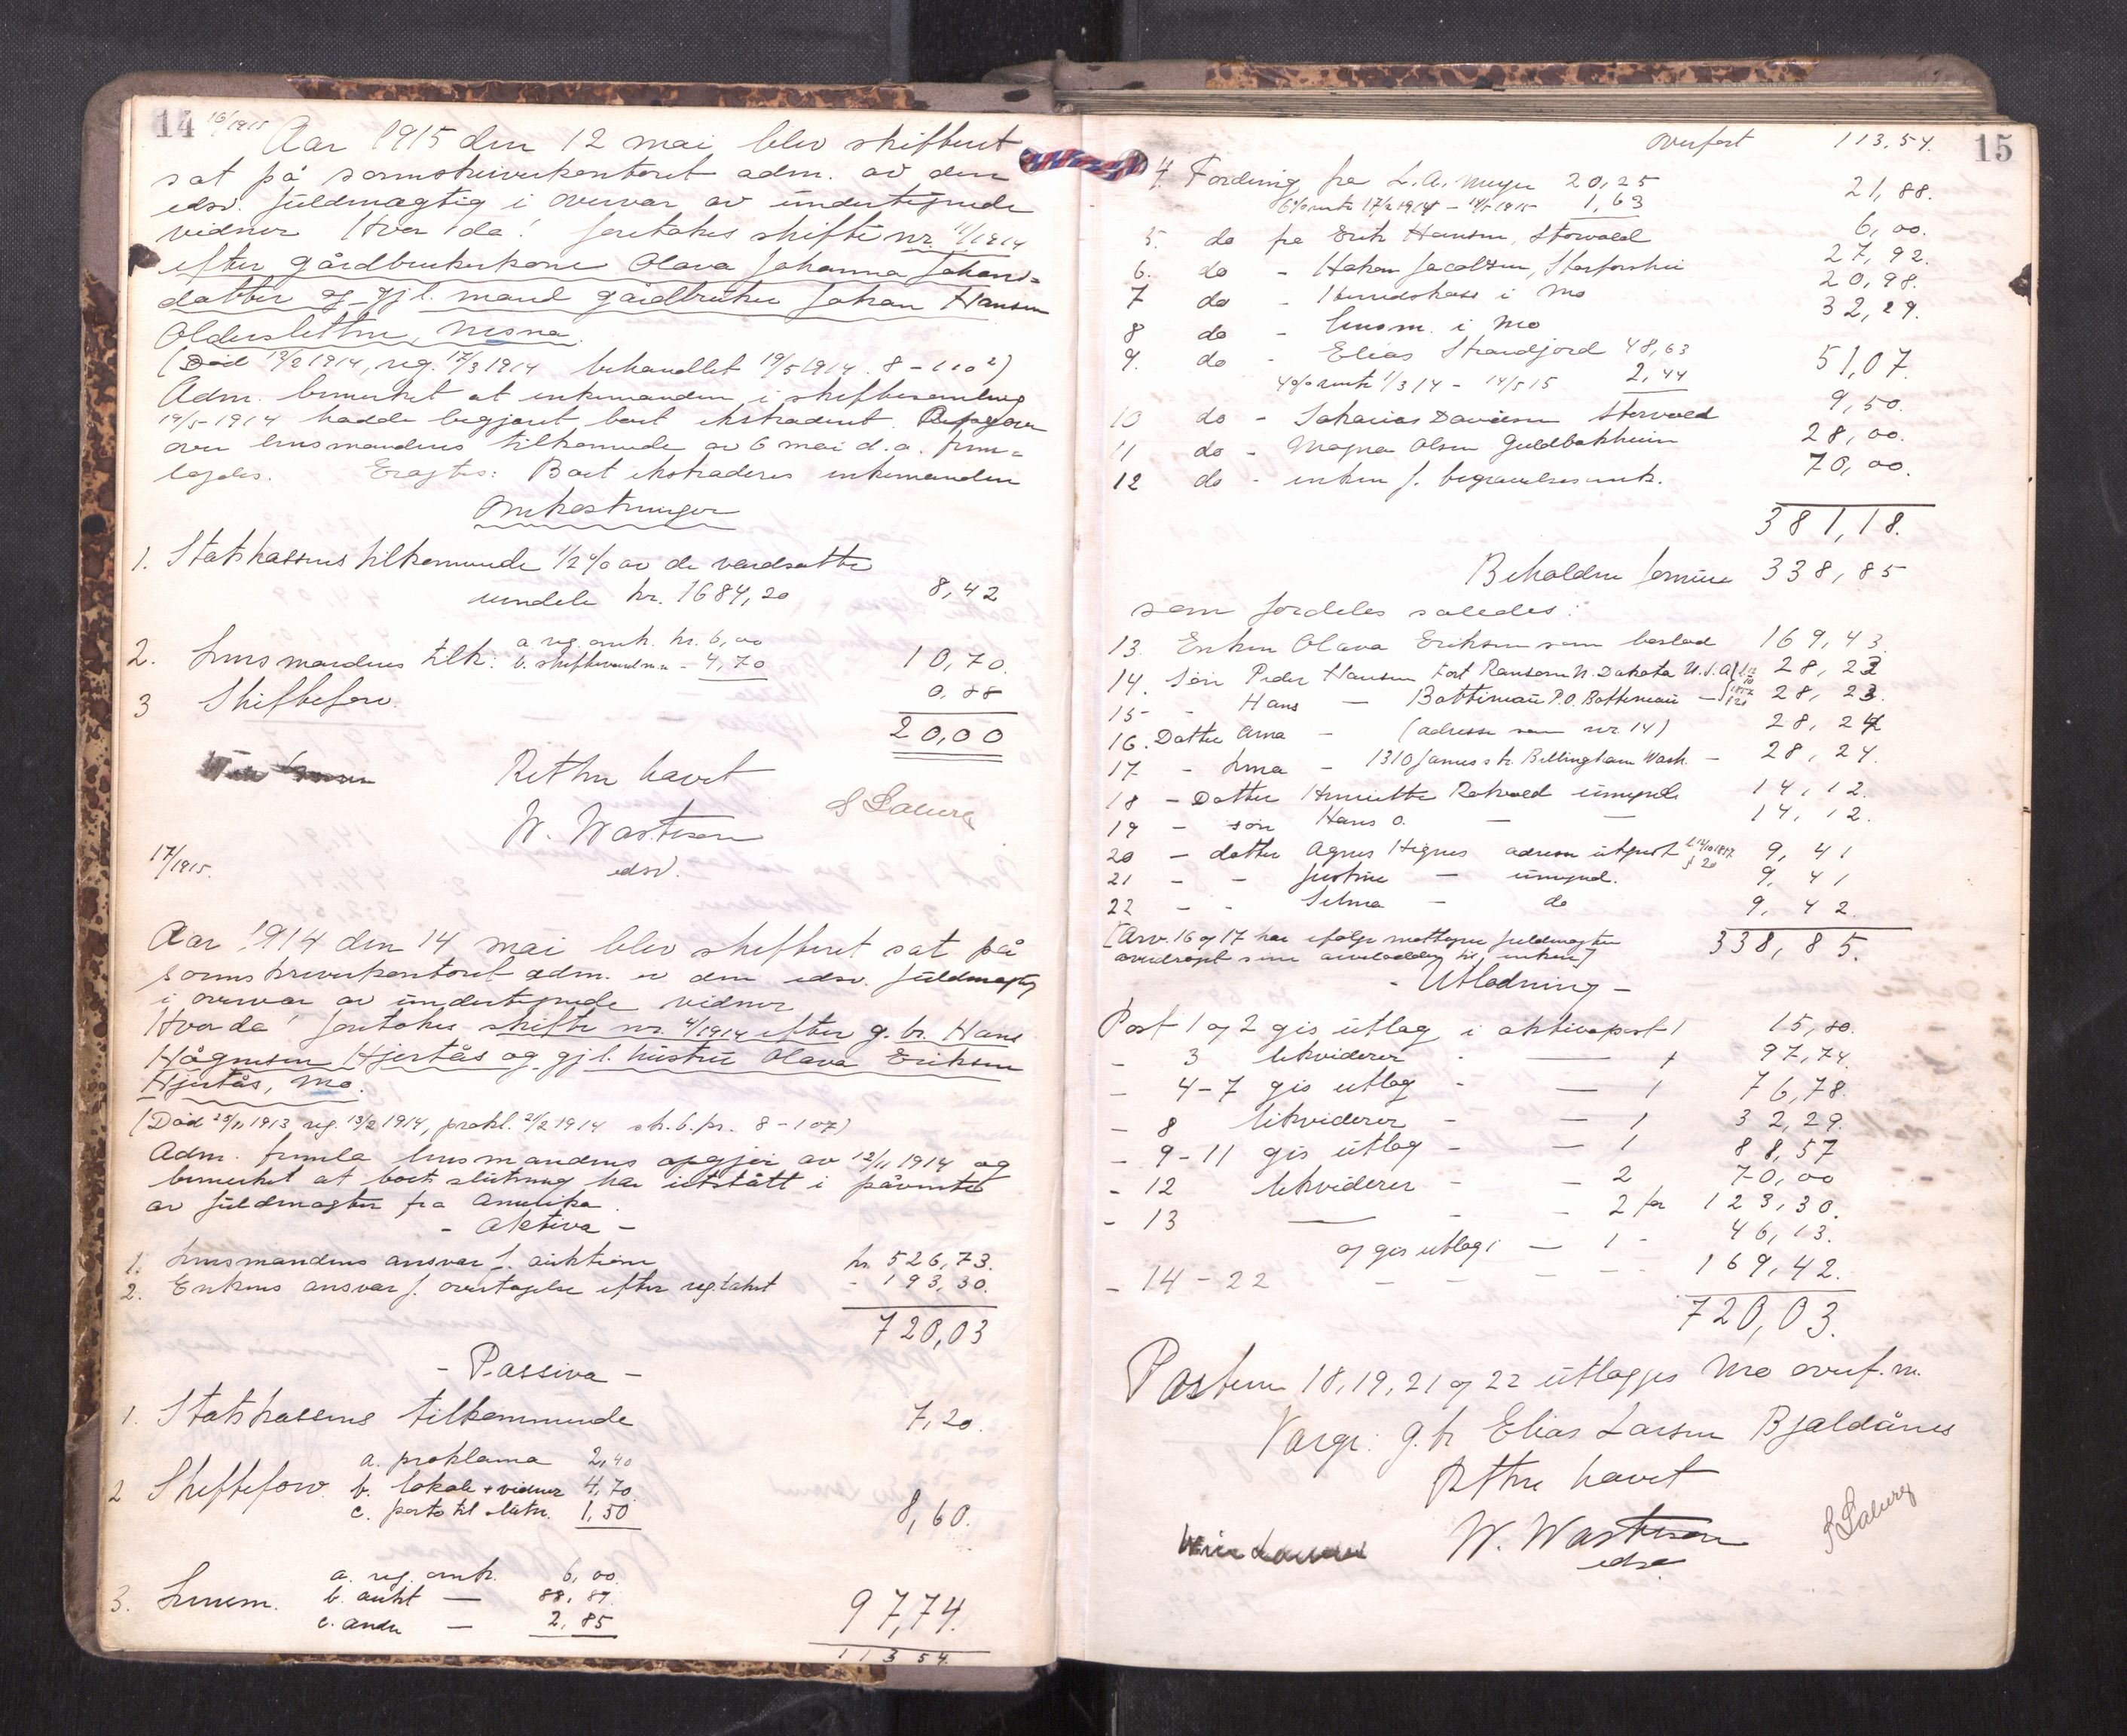 14 16/1915
Aar 1915 den 12 mai blev skifteret
sat på sorenskriverkontoret adm. av den
edsv. fuldmægtig i overvær av undertegnede
vidner Hvorda! foretokes skifte nr. 11/1914
efter gårdbrukerkone Olava Johanna Johans-
datter og gjl. mand gårdbruker Johan Hansen
Oldersletten, Nesna.
(Död 19/2 1914, reg. 17/3 1914 behandlet 19/5 1914. 8 - 110²)
Adm. bemerket at enkemanden i skiftesamling
19/5 1914 hadde begjært boet ekstradert. Opgave
over lensmandens tilkommende av 6 mai d.a. frem-
lagdes. Eragtes: Boet ekstraderes enkemanden
Omkostninger
1. Statskassens tilkommende 1/2 % av de værdsatte
eiendele kr. 1684,20 8,42
2. Lensmandens tilk. a reg. omk. kr. 6,00
b. skiftevidner - 4,70 10,70.
3 Skifteforv. 0,88
20,00
Retten hævet
W. Wastesson
edsv.
17/1915.
Aar 1914 den 14 mai blev skifteret sat på
sorenskriverkontoret adm. av den edsv. fuldmægtig
i overvær av undertegnede vidner
Hvorda! foretokes skifte nr. 4/1914 efter g. br. Hans
Hågensen Hjertås og gjl. hustru Olava Eriksen
Hjertås, Mo.
(Död 25/11 1913 reg. 13/2 1914, prokl. 21/2 1914 sk. b. pr. 8 - 107)
Adm. fremla lensmandens opgjör av 12/11 1914 og
bemerket at boets slutning har utstått i påvente
av fuldmagter fra Amerika.
- Aktiva -
1. Lensmandens ansvar f. auktion kr. 526,73.
2. Enkens ansvar f. overtagelse efter reg.takst - 193,30.
720,03
- Passiva -
1. Statskassens tilkommende 7,20.
2 Skifteforv. a. proklama 2,40
b. lokale + vidner 4,70.
c. porto til slutn. 1,50 8,60.
3. Lensm. a. reg. omk. 6,00.
b. aukt — 88,89.
c. andre — 2,85 97,74.
113 54.
15
Overfört 113,54.
4. Fordring fra L.A. Meyer 20,25
6% rente 17/2 1914 - 14/5 1915 1,63 21,88.
5. do fra Erik Hansen, Storvold 6,00.
6. do - Hakon Jacobsen, Storforshei 27,92.
7 do - Herredskass i Mo 20,98.
8 do - Lensm. i Mo 32,29.
9. do - Elias Strandjord 48,63
4% rente 1/3 14 - 14/5 15 2,44 51,07.
10 do - Sakarias Davidsen Storvold 9,50.
11 do - Magna Olsen Guldbakheim 28,00.
12 do - enken f. begravelsesomk. 70,00.
381,18.
Beholden formue 338,85
som fordeles således:
13. Enken Olava Eriksen som boslod 169,43.
14. Sön Peder Hansen Fort Ransom N. Dakota U.S.A. 28,23
15 - Hans — Bottineau P.O. Bottineau — 28,23.
16. Datter Anna - (adresse som nr. 14) 28,24
17 - Lina - 1310 James str. Bellingham Wash. - 28,24.
18 - Datter Henriette Rotvold umynd. 14,12.
19 - sön Hans O. — — 14,12.
20 - datter Agnes Hegnes adresse utgivet 9,41
21 - - Justine — umynd. 9,41
22 - - Selma — do 9,42.
[Arv. 16 og 17 har ifølge mottagne fuldmagter 338,85.
overdraget sine arvelodder til enken]
- Utlodning -
Post 1 og 2 gis utlæg i aktivapost 1 15,80.
- 3 likviderer - — 1 97,74.
- 4-7 gis utlæg - — 1 76,78.
- 8 likviderer - — 1 32,29.
- 9-11 gis utlæg - — 1 88,57
- 12 likviderer - — 2 70,00
- 13 — - - 2 for 123,30.
og gis utlæg i — 1 - 46,13.
- 14 - 22 - - - - 169,42.
720,03.
Postene 18, 19, 21 og 22 utlægges Mo overf.m.
Værge: g.br Elias Larsen Bjeldånes
Retten hævet
W. Wastesson
edsv.